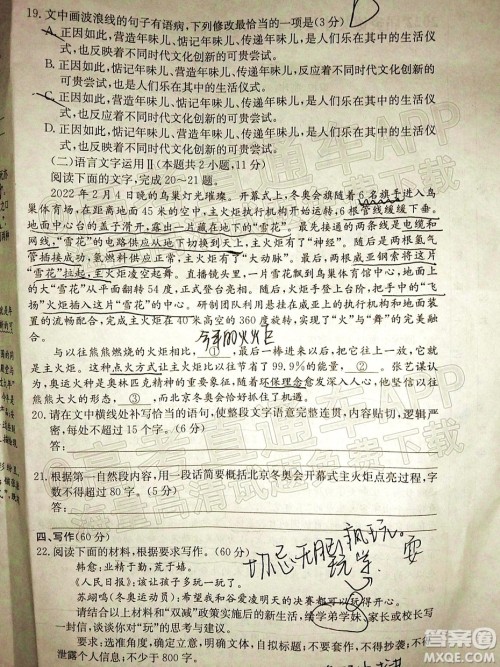 19. 文中画波浪线的句子有语病,下列修改最恰当的一项是(3分)
A. 正因如此,营造年味儿、惦记年味儿、传递年味儿,是人们乐在其中的生活仪
式,也反映着不同时代文化创新的可贵尝试。
B. 正因如此,惦记年味儿、营造年味儿、传递年味儿,反应着不同时代文化创新的
可贵尝试,也是人们乐在其中的生活仪式。
C. 正因如此,营造年味儿、惦记年味儿、传递年味儿,是人们乐在其中的生活仪
式,也反应着不同时代文化创新的可贵尝试。
D. 正因如此,惦记年味儿、营造年味儿、传递年味儿,是人们乐在其中的生活仪
式,也反映着不同时代文化创新的可贵尝试。
(二)语言文字运用Ⅱ(本题共2小题,11分)
阅读下面的文字,完成20~21题。
2022年2月4日晚的鸟巢灯光璀璨。开幕式上,冬奥会旗随着6名旗手进入鸟
巢体育场,在距离地面45米的空中,主火炬执行机构开始运转,6根管线缓缓下垂。
地面中心台的盖子滑开,露出一片藏在地下的“雪花”。最先接通的两条线是电缆和
网线,“雪花”的电路供应从地下切换到天上,主火炬有了“神经”。随后是两根氢气
管插接成功,氢燃料供应正常,主火炬有了“大动脉”。最后,两根威亚钢索将这片
“雪花”拉起,主火炬凌空起舞。直播镜头里,一片雪花飘到鸟巢体育馆中心,地面上
的大“雪花”从平面翻转54度,正式登台亮相。火炬手登上台阶,把手中的“飞
扬”火炬插入这片“雪花”的中心。研制团队利用悬挂在威亚上的执行机构和地面装置
的流畅配合,完成主火炬在40米高空的360度旋转,实现了“火”与“舞”的完美
融合。
今年的火炬
与以往熊熊燃烧的火炬相比, ① ,最后一棒进来以后,把它往上一放,它就
是主火炬。这种点火方式让主火炬比以往节省了99.9%的能量, ② 。张艺谋认
为,奥运火种是奥林匹克精神的重要象征,随着环保理念愈发深入人心,他坚信以往熊
熊大火的形态, ③ ,而北京冬奥会恰好抓住了这个时机。
20. 请在文中横线处补写恰当的语句,使整段文字语意完整连贯,内容贴切,逻辑严
密,每处不超过15个字。(6分)
答:
21. 根据第一自然段内容,用一段话简要概括北京冬奥会开幕式主火炬点亮过程,字
数不得超过80字。(5分)
答:
四、写作(60分)
22. 阅读下面的材料,根据要求写作。(60分)
韩愈:业精于勤,荒于嬉。
《人民日报》:该让孩子多玩一玩了。
苏翊鸣(冬奥运动员):希望我和谷爱凌明天的决赛都可以玩得开心。
请结合以上材料和“双减”政策实施后的新生活,给学弟学妹、家长或校长写
一封信,谈谈你对“玩”的思考与建议。
要求:选准角度,确定立意,明确文体,自拟标题;不要套作,不得抄袭;不得
泄露个人信息;不少于800字。